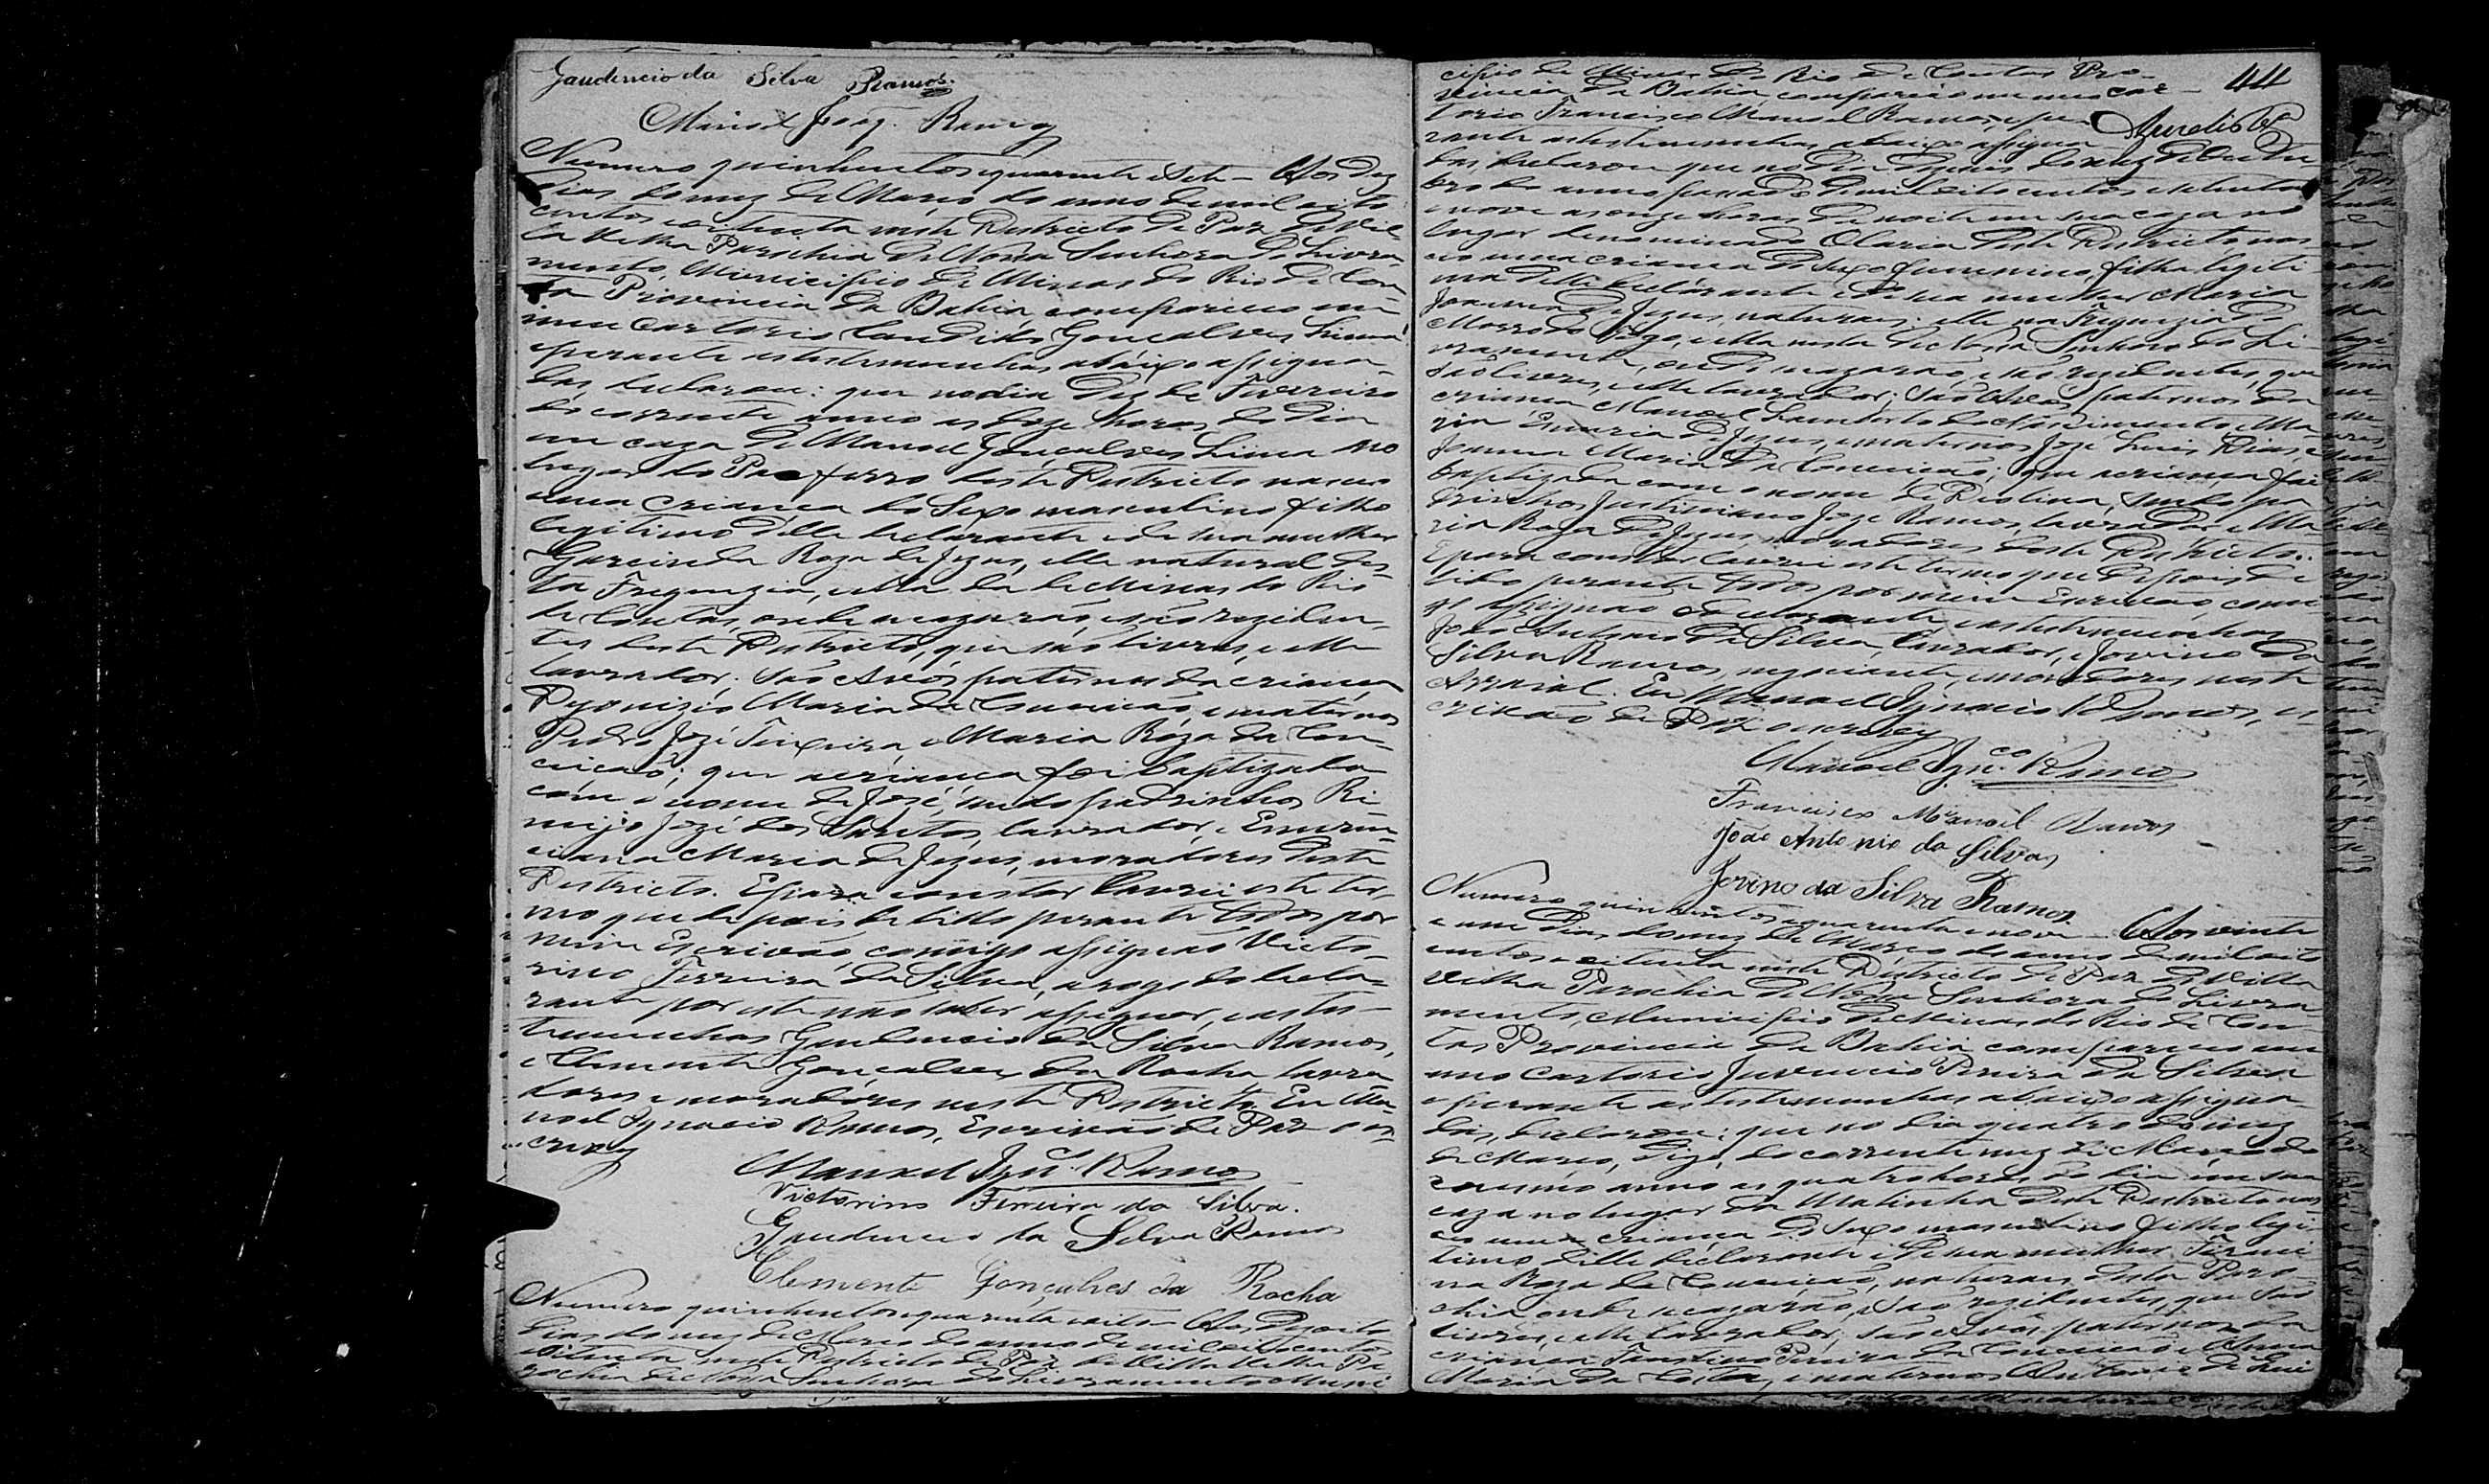 Gaudencio da Silva Ramos.
Manoel Joaq. Ramos
Numero quinhentos quarenta e sete — Aos dez
dias do mez de Março do anno de mil oito
centos e oitenta neste Districto de Paz de Vil-
la Velha Parochia de Nossa Senhora do Livra-
mento, Municipio de Minas do Rio de Con-
tas Provincia da Bahia compareceo em
meu Cartorio Candido Gonçalves Lima
e perante as testemunhas abaixo assigna-
das declarou: que no dia dez de Fevereiro
do corrente anno as doze horas do dia
em caza de Manoel Gonçalves Lima no
lugar do ferro deste Districto nasceo
uma criança do Sexo masculino filho
legitimo delle declarante e de sua mulher
Roza de Jezus, elle natural des-
ta Freguezia, e ella da de Minas do Rio
de Contas, onde se cazarão, e são reziden-
tes deste Districto, que são livres, e elle
lavrador. São Avós paternos da criança
Dyonizio Maria da Conceição, e maternos
Pedro José Teixeira, e Maria Roza da Con-
ceição; que a criança foi baptizada
com o nome de José, sendo padrinhos Re-
migio José dos Santos, lavrador, e Emeren-
ciana Maria de Jezus, moradores deste
Districto. E para constar lavrei este ter-
mo que depois de lido perante todos por
mim Escrivão, comigo assignão Victo-
rino Ferreira da Silva, a rogo do decla-
rante por este não saber assignar, e as tes-
temunhas Gaudencio da Silva Ramos,
e Clemente Gonçalves da Rocha lavra-
dores e moradores neste Districto. Eu Ma-
noel Ignacio Ramos, Escrivão de Paz o es-
crevy
Manoel Ignc. Ramos
Victorino Ferreira da Silva.
Gaudencio da Silva Ramos
Clemente Gonçalves da Rocha
Numero quinhentos quarenta e oito — Aos dezoito
dias do mez de Março do anno de mil oitocentos
e oitenta neste Districto de Paz de Villa Velha Pa-
rochia de Nossa Senhora do Livramento Muni
cipio de Minas do Rio de Contas Pro-
vincia da Bahia, compareceo em meu car-
torio Francisco Manoel Ramos, e pe-
rante as testemunhas abaixo assigna-
das, declarou que no dia do mez de Outu
bro do anno passado de mil oitocentos e setenta
e nove as onze horas da noite em sua caza no
lugar denominado Olaria deste Districto, nas-
ceo uma criança do Sexo femenino, filha legiti-
ma delle declarante e de sua mulher Maria
Joanna de Jezus, naturaes: elle na Freguezia do
Morro do Fogo, e ella nesta de Nossa Senhora do Li-
vramento, onde se cazarão, e são rezidentes, que
são livres, e elle lavrador; São Avós paternos da
criança Manoel do Nascimento e Ma-
ria de Jezus, e maternos José Luis Dias, e
Joanna Maria da Conceição; que a criança foi
baptizada com o nome de sendo pa-
drinhos Justiniano José Ramos, lavrador e Ma-
ria Roza de Jezus, moradores deste Districto.
E para constar lavrei este termo que depois de
lido perante todos por mim Escrivão, comi-
go assignão o declarante, e as testemunhas
João Antonio da Silva, lavrador, e Jovino da
Silva Ramos, negociante, e moradores neste
Arraial. Eu Manoel Ignacio Ramos, es-
crivão de Paz o escrevy
Manoel Ignco. Ramos
Francisco Manoel Ramos
João Antonio da Silva
Jovino da Silva Ramos
44
Aurelio
Numero quinhentos e quarenta e nove — Aos vinte
e um dias do mez de Março do anno de mil oito
centos e oitenta neste Districto de Paz de Villa
Velha Parochia de Nossa Senhora do Livra-
mento, Municipio de Minas do Rio de Con-
tas Provincia da Bahia compareceo em
meu Cartorio Juvencio Pereira da Silva
e perante as testemunhas abaixo assigna-
das, declarou: que no dia quatro do mez
de Março, digo, do corrente mez de Março do
mesmo anno as quatro horas do dia em sua
caza no lugar da Matinha deste Districto nas-
ceo uma criança do Sexo masculino filho legi-
timo delle declarante e de sua mulher Firmi-
na Roza da Conceição, naturaes desta Paro-
chia onde se cazarão, e são rezidentes, que são
livres, e elle lavrador, são Avós paternos da
criança Faustino Pereira da Conceição e Anna
Maria da Costa, e maternos Antonio de